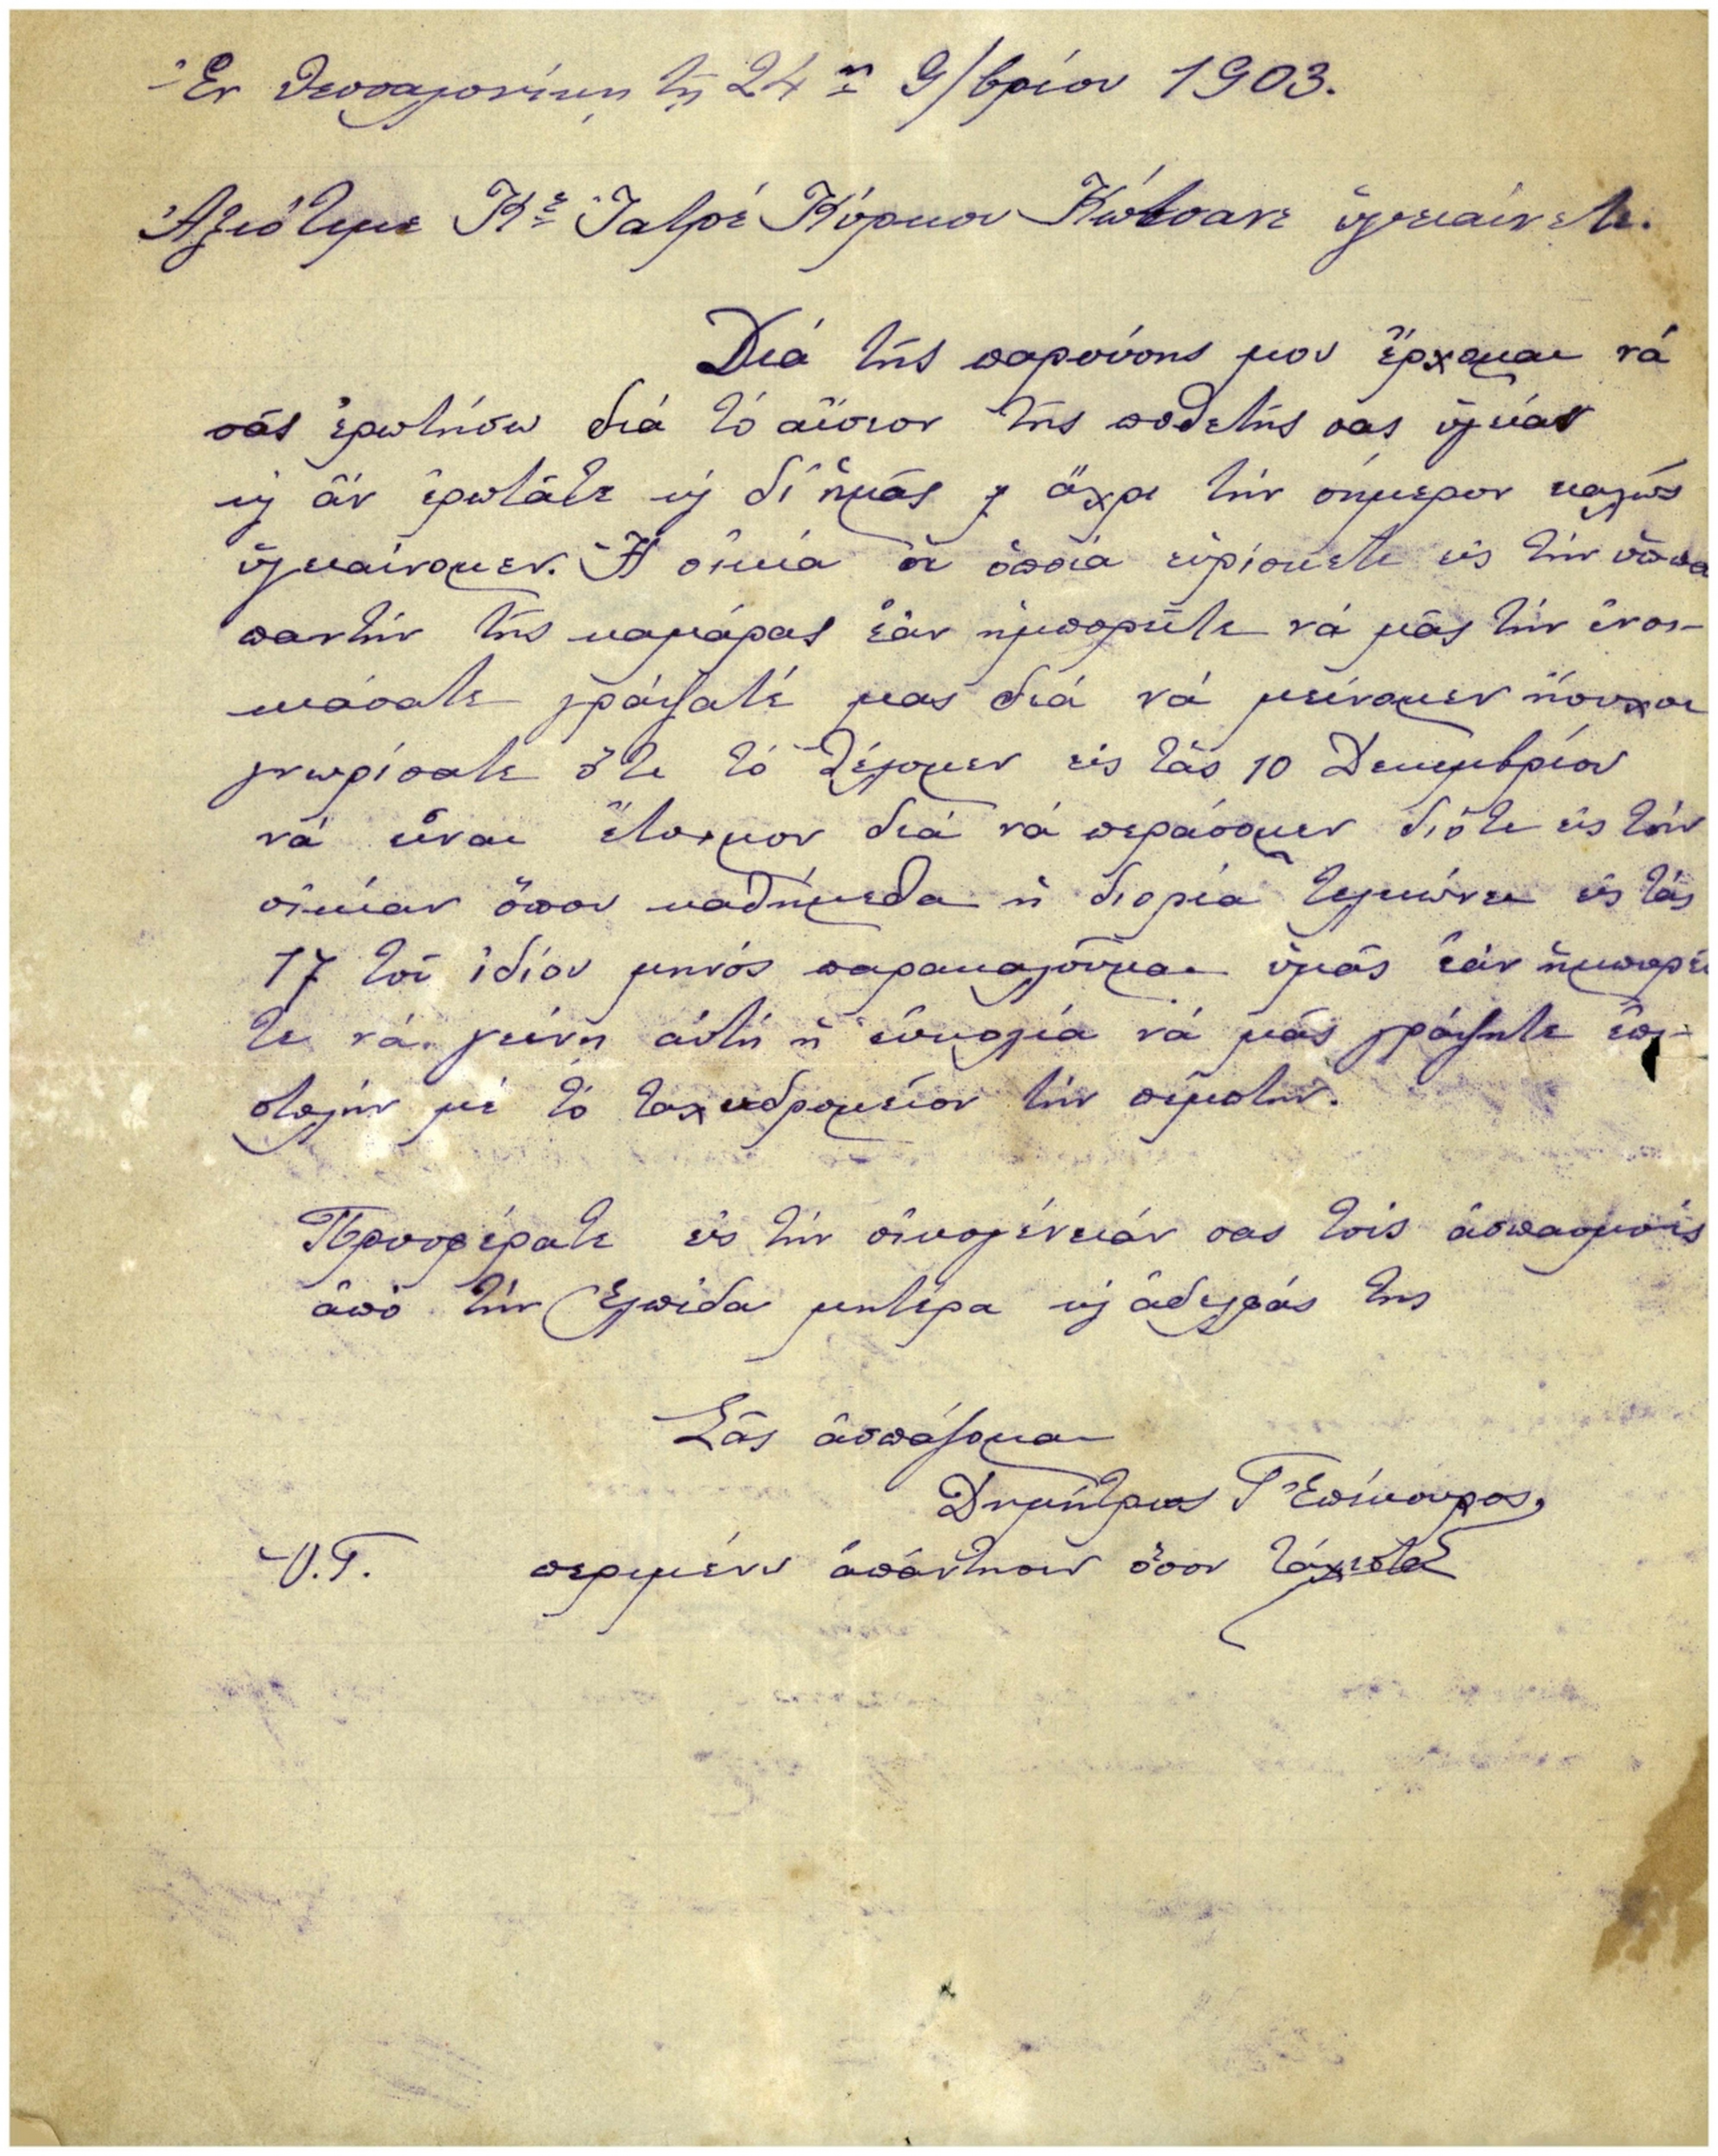 Ἐν Θεσσαλονίκῃ τῇ 24ῃ 9/βρίου 1903.
Ἀξιότιμε Κε Ἰατρέ Κύρκου Κώτσανε ὑγιαίνετε.
Διά τῆς παρούσης μου ἔρχομαι νά
σᾶς ἐρωτήσω διά τό αἴσιον τῆς ποθετῆς σας ὑγείας
κ̀ ἄν ἐρωτᾶτε κ̀ δι' ἡμᾶς ἄχρι τήν σήμερον καλῶς
ὑγιαίνομεν. Ἡ οἰκία ἡ ὁποία εὑρίσκετε εἰς τήν ὑπα
παντήν τῆς καμάρας ἐάν ἠμπορεῖτε νά μᾶς τήν ἐνοι-
κιάσατε γράψατέ μας διά νά μείνομεν ἥσυχοι
γνωρίσατε ὅτι τό θέλομεν εἰς τάς 10 Δεκεμβρίου
νά εἶναι ἕτοιμον διά νά περάσομεν διότι εἰς τήν
οἰκίαν ὅπου καθήμεθα ἡ διορία τελειώνει εἰς τάς
17 τοῦ ἰδίου μηνός παρακαλοῦμαι ὑμᾶς ἐάν ἠμπορεῖ
τε νά γείνῃ αὐτή ἡ εὐκολία νά μᾶς γράψητε ἐπι-
στολήν μέ τό ταχυδρομεῖον τήν πέμπτην.
Προσφέρατε εἰς τήν οἰκογένειάν σας τοῖς ἀσπασμοῖς
ἀπό τήν Ἐλπίδα μητέρα κ̀ ἀδελφάς της
Σᾶς ἀσπάζομαι
Δημήτριος Γ Ἐπίκουρος,
Υ.Γ. περιμένω ἀπάντησιν ὅσον τάχιστα